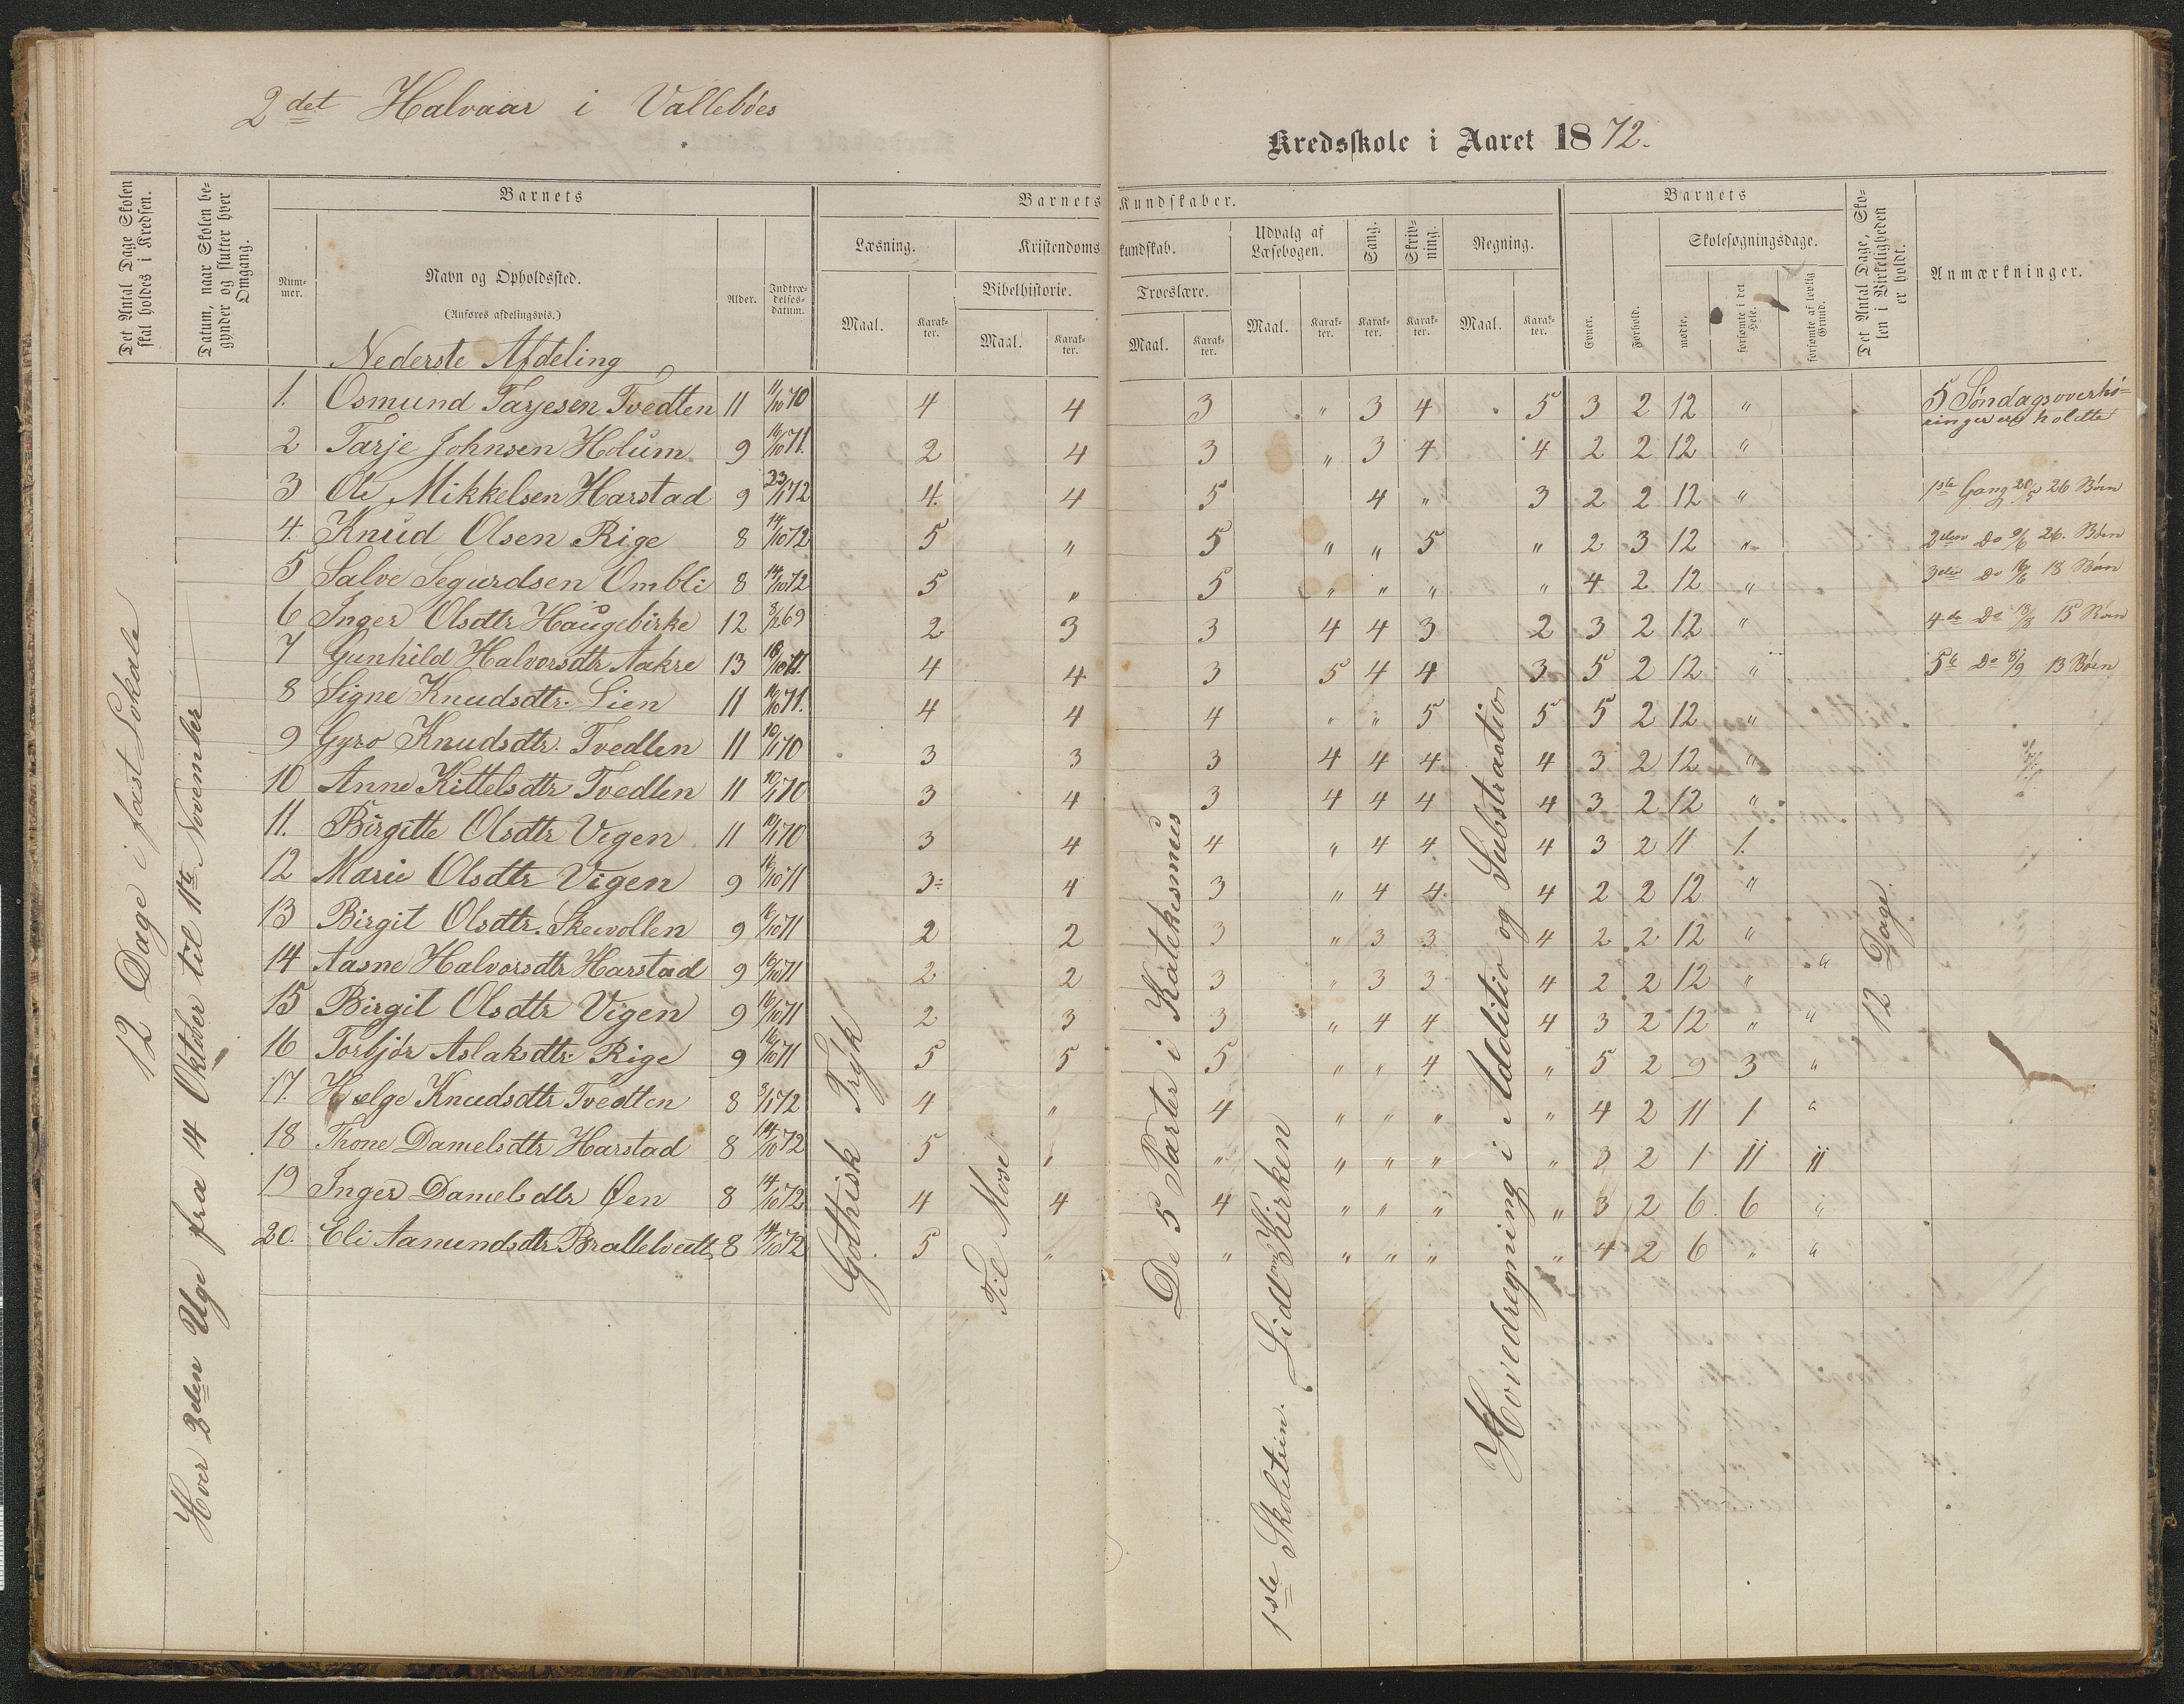 2det Halvaar i Vallebøes
Kredsskole i Aaret 1872.
Det Antal Dage Skolen skal holdes i Kredsen.
Datum, naar Skolen begynder og slutter hver Omgang.
Barnets
Nummer.
Navn og Opholdssted.
(Anføres afdelingsvis.)
Alder.
Indtrædelsesdatum.
Barnets Kundskaber.
Læsning.
Maal.
Karakter.
Kristendomskundskab.
Bibelhistorie.
Maal.
Karakter.
Troeslære.
Maal.
Karakter.
Udvalg af Læsebogen.
Maal.
Karakter.
Sang.
Karakter.
Skrivning.
Karakter.
Regning.
Maal.
Karakter.
Barnets
Evner.
Forhold.
Skolesøgningsdage.
mødte.
forsømte i det Hele.
forsømte af lovlig Grund.
Det Antal Dage, Skolen i Virkeligheden er holdt.
Anmærkninger.
Nederste Afdeling
1. Osmund Tarjesen Tvedten 11 11/10 70 4 4 3 " 3 4 5 3 2 12 "
2 Tarje Johnsen Holum 9 16/10 71. 2 4 3 " 3 4 4 2 2 12 "
3 Ole Mikkelsen Harstad 9 23/1 72 4. 4 5 4 " 3 2 2 12 "
4. Knud Olsen Rige 8 14/10 72 5 " 5 " " 5 " 2 3 12 "
5 Salve Segurdsen Ombli 8 14/10 72 5 " 5 " " " " 4 2 12 "
6 Inger Olsdtr Haugebirke 12 69 2 3 3 4 4 3 2 3 2 12 "
7 Gunhild Halvorsdtr Aakre 13 18/10 71. 4 4 3 5 4 4 3 5 2 12 "
8 Signe Knudsdtr. Lien 11 16/10 71. 4 4 4 " " 5 5 5 2 12 "
9 Gyro Knudsdtr. Tvedten 11 10/1 70 3 3 3 4 4 4 4 3 2 12 "
10 Anne Kittelsdtr Tvedten 11 10/1 70 3 4 3 4 4 4 4 3 2 12 "
11. Birgitte Olsdtr Vigen 11 10/1 70 3 4 4 " 4 4 4 3 2 11 1
12 Marie Olsdtr Vigen 9 16/10 71 3 4 3 " 4 4 4 2 2 12 "
13 Birgit Olsdtr. Skevollen 9 16/10 71 2 2 3 " 3 3 4 2 2 12 "
14 Aasne Halvorsdtr Harstad 9 16/10 71 2 2 3 " 3 3 4 2 2 12 " "
15 Birgit Olsdtr Vigen 9 16/10 71 2 3 3 " 4 4 4 3 2 12 " "
16 Torbjør Aslaksdtr. Rige 9 16/10 71 5 5 5 " " 4 " 5 2 9 3 "
17. Hælge Knudsdtr Tvedten 8 72 4 " 4 " " " " 4 2 11 1 "
18 Thone Danielsdtr Harstad 8 14/10 72 5 " " " " " " 3 2 1 11 11
19 Inger Danielsdtr Øen 8 14/10 72 4 4 4 " " " " 3 2 6 6 "
20. Eli Aamundsdtr 8 14/10 72 5 " " " " " " 4 2 6 " "
12 Dage i fast Lokale
Hver 2den Uge fra 14 Oktober til 11te November
Gothisk Tryk
Til Mose
De 5 Parter i Katekesmus
1ste Skoletrin. Lidt om Kirken
Hovedregning i Additio og Substractio
12 Dage
5 Søndagsoverhøringer holdte
1ste Gang 20/5 26 Børn
2den Do 9/6 26. Børn
3die Do 16/6 18 Børn
4de Do 18/8 15 Børn
5te Do 8/9 13 Børn